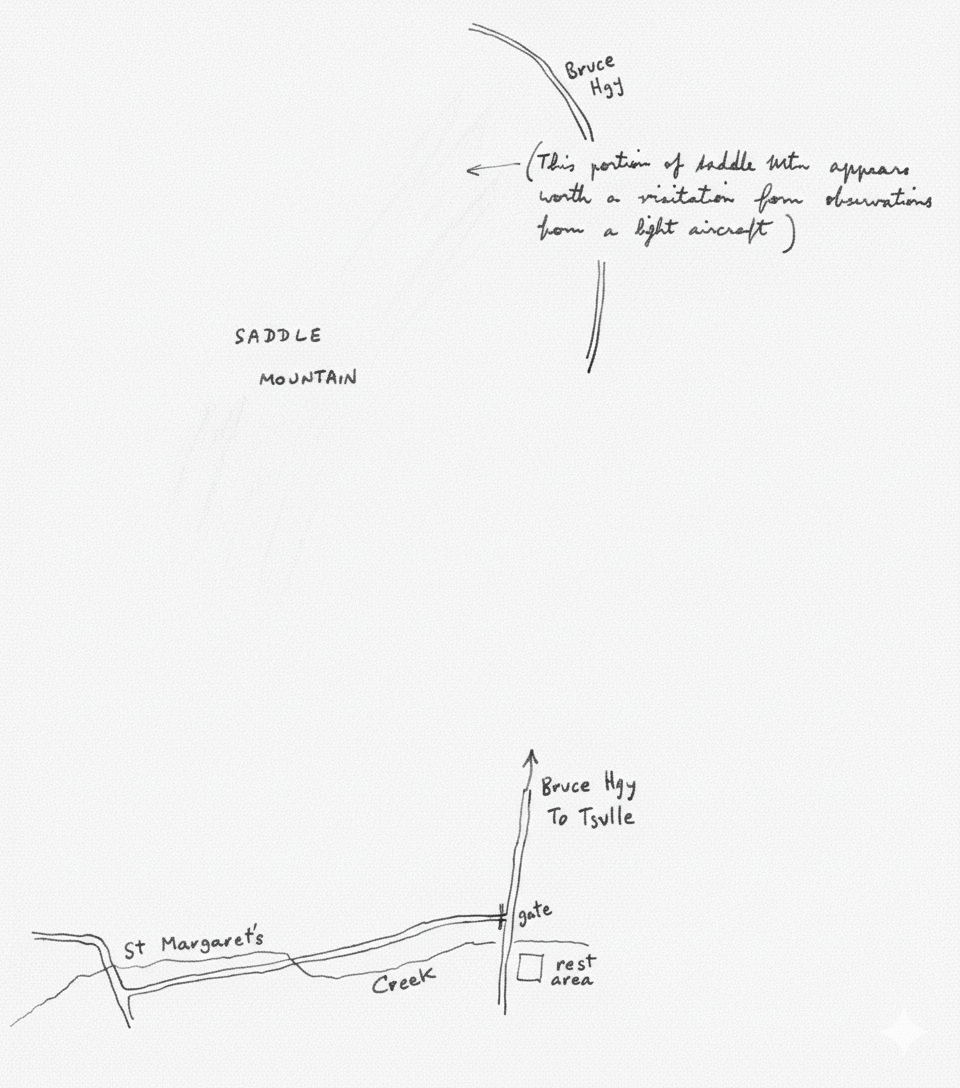 Bruce
Hgy
(This portion of Saddle Mtn appears
worth a visitation from observations
from a light aircraft)
SADDLE
MOUNTAIN
Bruce Hgy
To Tsvlle
gate
St Margaret's
Creek
rest
area